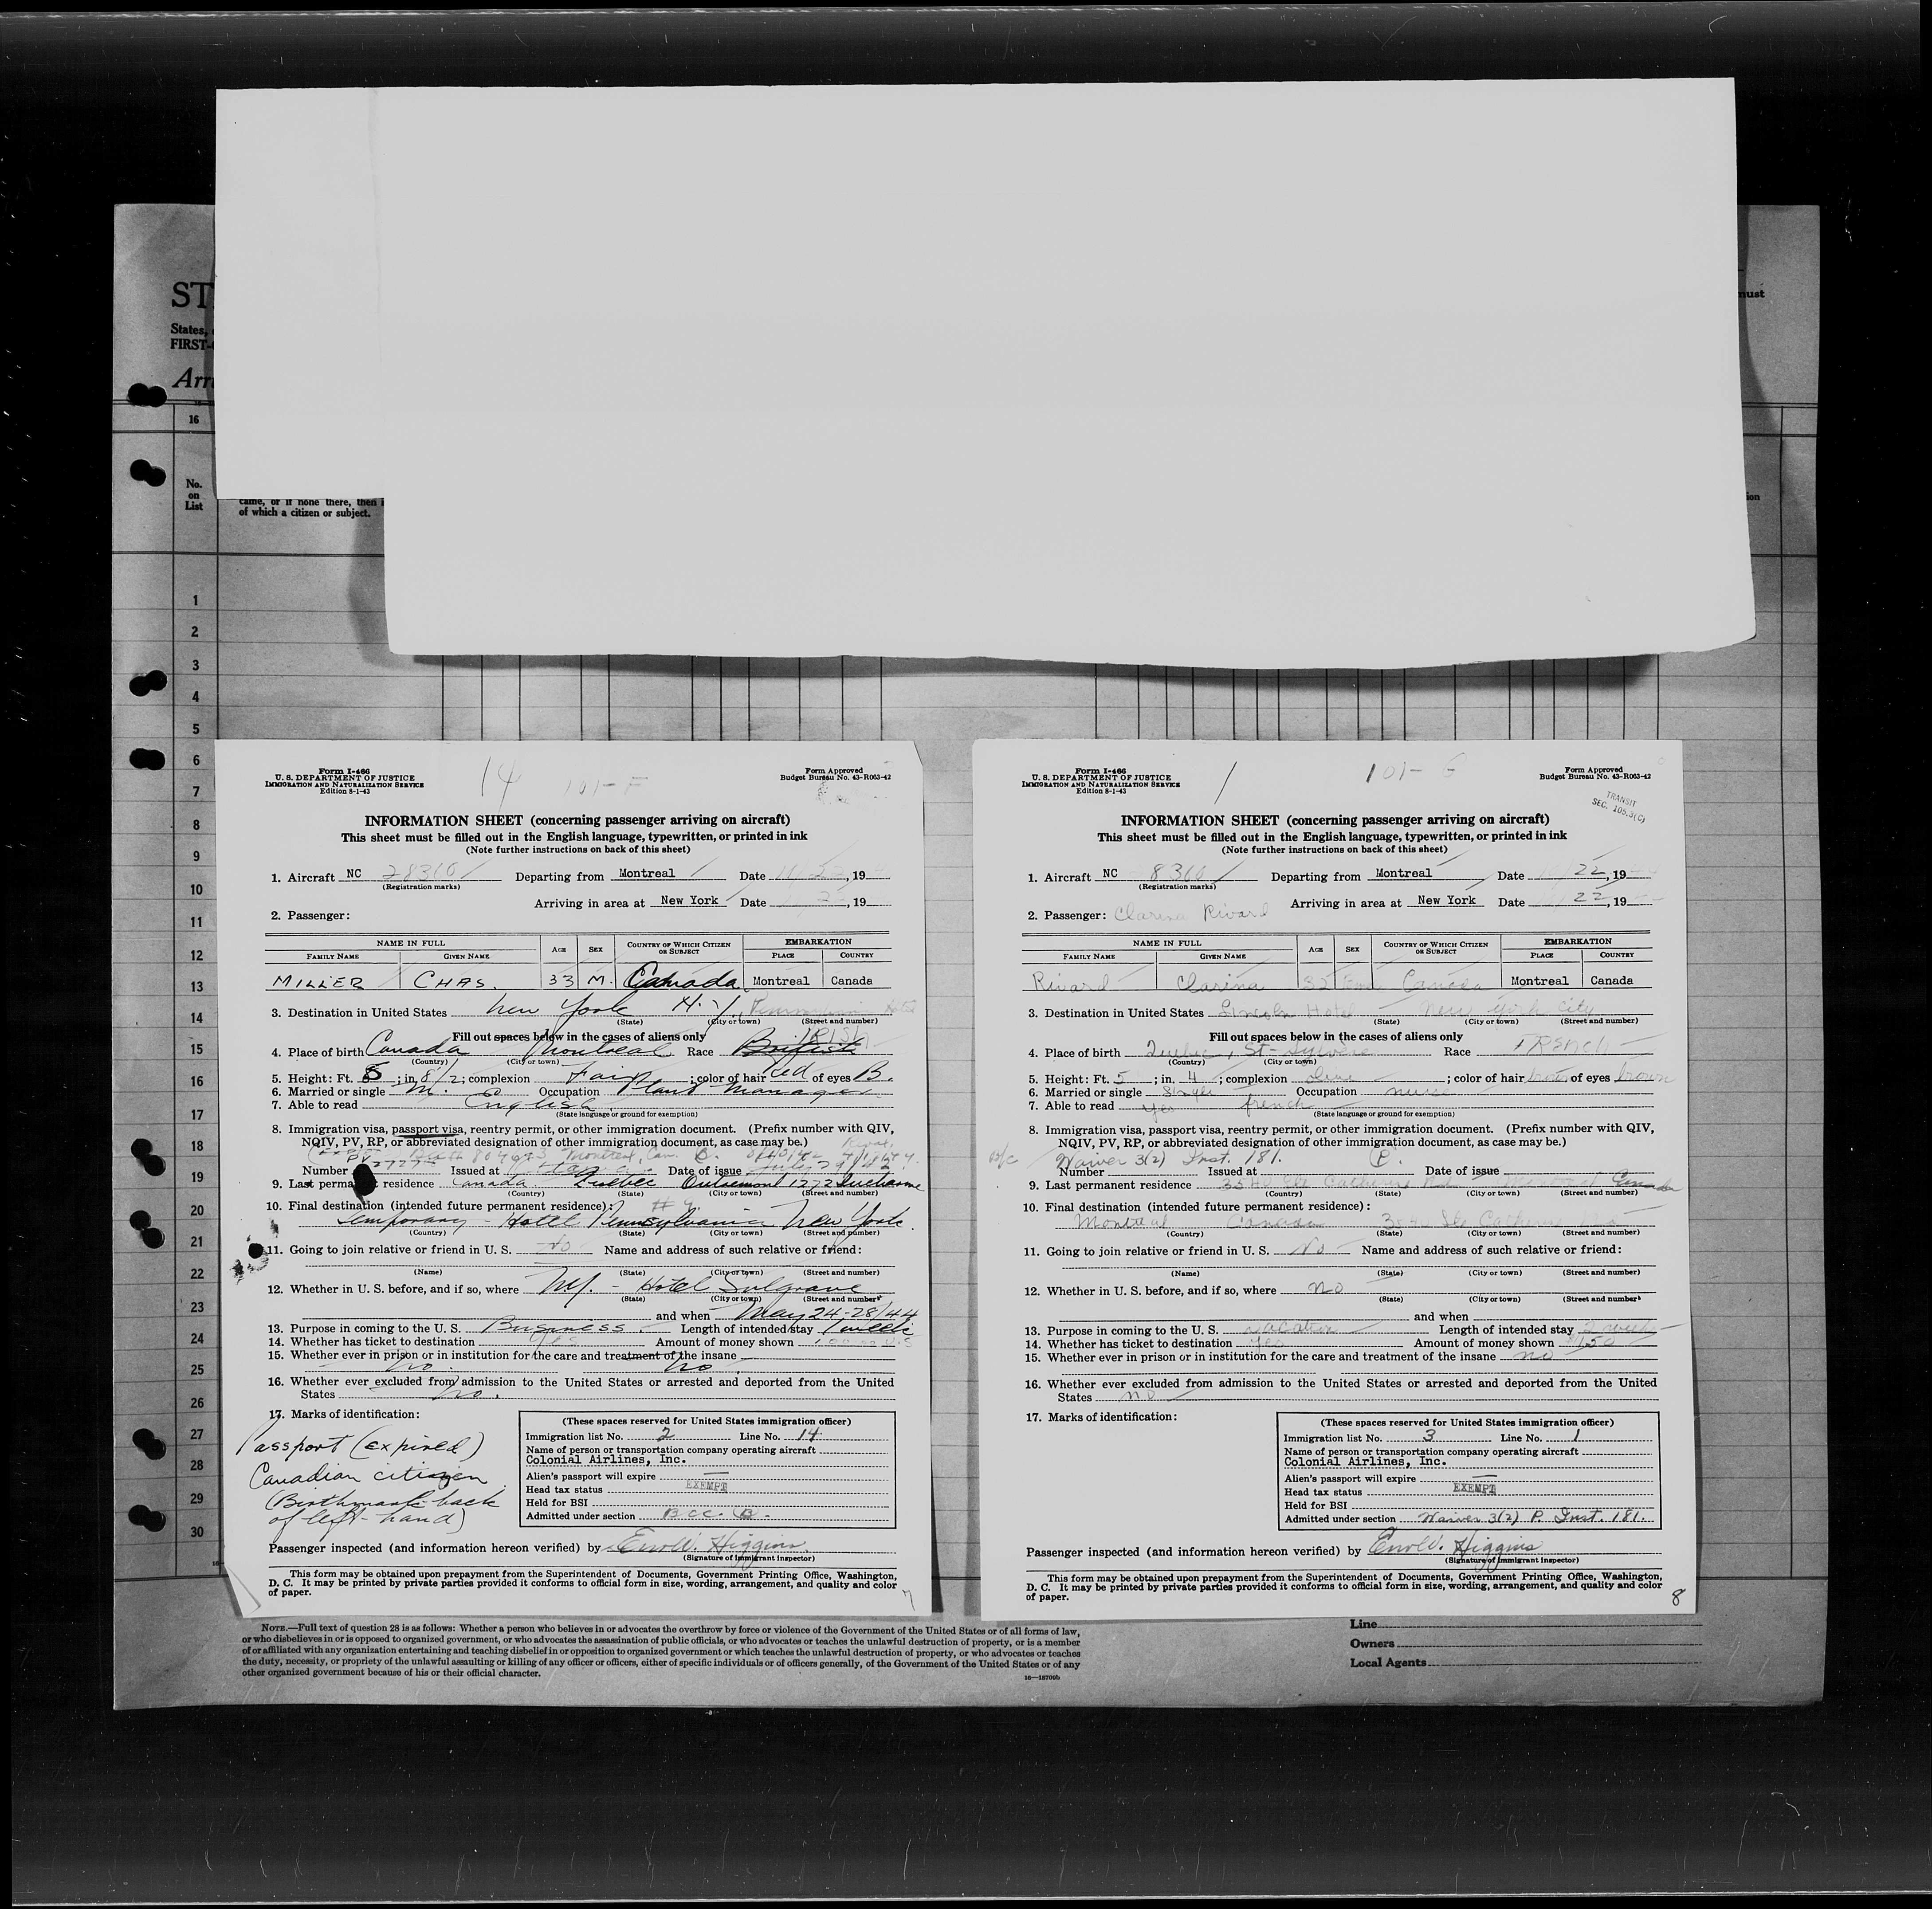 ST
States,
FIRST-
Arri
must
16
No.
on
List
came, or if none there, then
of which a citizen or subject.
ion
1
2
3
4
5
6
7
8
9
10
11
12
13
14
15
16
17
18
19
20
21
22
23
24
25
26
27
28
29
30
Form I-466
U. S. DEPARTMENT OF JUSTICE
IMMIGRATION AND NATURALIZATION SERVICE
Edition 8-1-43
14
101-F
Form Approved
Budget Bureau No. 43-R063-42
INFORMATION SHEET (concerning passenger arriving on aircraft)
This sheet must be filled out in the English language, typewritten, or printed in ink
(Note further instructions on back of this sheet)
1. Aircraft NC 28310 Departing from Montreal Date 11/22, 19
(Registration marks)
Arriving in area at New York Date 22, 19
2. Passenger:
NAME IN FULL AGE SEX COUNTRY OF WHICH CITIZEN OR SUBJECT EMBARKATION
FAMILY NAME GIVEN NAME PLACE COUNTRY
MILLER CHAS. 33 M. Canada Montreal Canada
3. Destination in United States New York N.Y.
(State) (City or town) (Street and number)
Fill out spaces below in the cases of aliens only
4. Place of birth Canada Montreal Race British
(Country) (City or town)
5. Height: Ft. 5; in. 8 1/2; complexion Fair; color of hair Red of eyes B.
6. Married or single M. Occupation Plant Manager
7. Able to read English
(State language or ground for exemption)
8. Immigration visa, passport visa, reentry permit, or other immigration document. (Prefix number with QIV,
NQIV, PV, RP, or abbreviated designation of other immigration document, as case may be.)
Montreal, Can.
Number PV Issued at Ottawa Date of issue July 29/42
9. Last permanent residence Canada Quebec Outremont 1272 Ducharme
(Country) (State) (City or town) (Street and number)
10. Final destination (intended future permanent residence):
temporary - Hotel Pennsylvania New York.
(Country) (State) (City or town) (Street and number)
11. Going to join relative or friend in U. S. No Name and address of such relative or friend:
(Name) (State) (City or town) (Street and number)
12. Whether in U. S. before, and if so, where N.Y. - Hotel Sulgrave
(State) (City or town) (Street and number)
and when May 24-28/44
13. Purpose in coming to the U. S. Business. Length of intended stay 1 week
14. Whether has ticket to destination yes Amount of money shown
15. Whether ever in prison or in institution for the care and treatment of the insane
no. no
16. Whether ever excluded from admission to the United States or arrested and deported from the United
States no.
17. Marks of identification:
Passport (expired)
Canadian citizen
(Birthmark back
of left hand)
(These spaces reserved for United States immigration officer)
Immigration list No. 2 Line No. 14
Name of person or transportation company operating aircraft
Colonial Airlines, Inc.
Alien's passport will expire —
Head tax status EXEMPT
Held for BSI
Admitted under section BCC. B.
Passenger inspected (and information hereon verified) by Enroll. Higgins
(Signature of immigrant inspector)
This form may be obtained upon prepayment from the Superintendent of Documents, Government Printing Office, Washington,
D. C. It may be printed by private parties provided it conforms to official form in size, wording, arrangement, and quality and color
of paper.
7
Form I-466
U. S. DEPARTMENT OF JUSTICE
IMMIGRATION AND NATURALIZATION SERVICE
Edition 8-1-43
1
101-G
Form Approved
Budget Bureau No. 43-R063-42
TRANSIT
SEC. 105.3(C)
INFORMATION SHEET (concerning passenger arriving on aircraft)
This sheet must be filled out in the English language, typewritten, or printed in ink
(Note further instructions on back of this sheet)
1. Aircraft NC 8310 Departing from Montreal Date 22, 19
(Registration marks)
Arriving in area at New York Date 22, 19
2. Passenger: Clarina Rivard
NAME IN FULL AGE SEX COUNTRY OF WHICH CITIZEN OR SUBJECT EMBARKATION
FAMILY NAME GIVEN NAME PLACE COUNTRY
Rivard Clarina 32 Fem Canada Montreal Canada
3. Destination in United States Lincoln Hotel New York city
(State) (City or town) (Street and number)
Fill out spaces below in the cases of aliens only
4. Place of birth Quebec, St-Sylvere Race French
(Country) (City or town)
5. Height: Ft. 5; in. 4; complexion Olive; color of hair brown of eyes brown
6. Married or single Single Occupation nurse
7. Able to read yes french
(State language or ground for exemption)
8. Immigration visa, passport visa, reentry permit, or other immigration document. (Prefix number with QIV,
NQIV, PV, RP, or abbreviated designation of other immigration document, as case may be.)
Waiver 3(2) Inst. 181. P.
Number Issued at Date of issue
9. Last permanent residence 3540 Ste Catherine Rd. Montreal Canada
(Country) (State) (City or town) (Street and number)
10. Final destination (intended future permanent residence):
Montreal Canada 3540 Ste Catherine
(Country) (State) (City or town) (Street and number)
11. Going to join relative or friend in U. S. No Name and address of such relative or friend:
(Name) (State) (City or town) (Street and number)
12. Whether in U. S. before, and if so, where no
(State) (City or town) (Street and number)
and when
13. Purpose in coming to the U. S. vacation Length of intended stay 2 weeks
14. Whether has ticket to destination yes Amount of money shown 150
15. Whether ever in prison or in institution for the care and treatment of the insane no
16. Whether ever excluded from admission to the United States or arrested and deported from the United
States no
17. Marks of identification:
(These spaces reserved for United States immigration officer)
Immigration list No. 3 Line No. 1
Name of person or transportation company operating aircraft
Colonial Airlines, Inc.
Alien's passport will expire —
Head tax status EXEMPT
Held for BSI
Admitted under section Waiver 3(2) P. Inst. 181.
Passenger inspected (and information hereon verified) by Enroll. Higgins
(Signature of immigrant inspector)
This form may be obtained upon prepayment from the Superintendent of Documents, Government Printing Office, Washington,
D. C. It may be printed by private parties provided it conforms to official form in size, wording, arrangement, and quality and color
of paper.
8
NOTE.—Full text of question 28 is as follows: Whether a person who believes in or advocates the overthrow by force or violence of the Government of the United States or of all forms of law,
or who disbelieves in or is opposed to organized government, or who advocates the assassination of public officials, or who advocates or teaches the unlawful destruction of property, or is a member
of or affiliated with any organization entertaining and teaching disbelief in or opposition to organized government or which teaches the unlawful destruction of property, or who advocates or teaches
the duty, necessity, or propriety of the unlawful assaulting or killing of any officer or officers, either of specific individuals or of officers generally, of the Government of the United States or of any
other organized government because of his or their official character.
16—18700b
Line
Owners
Local Agents